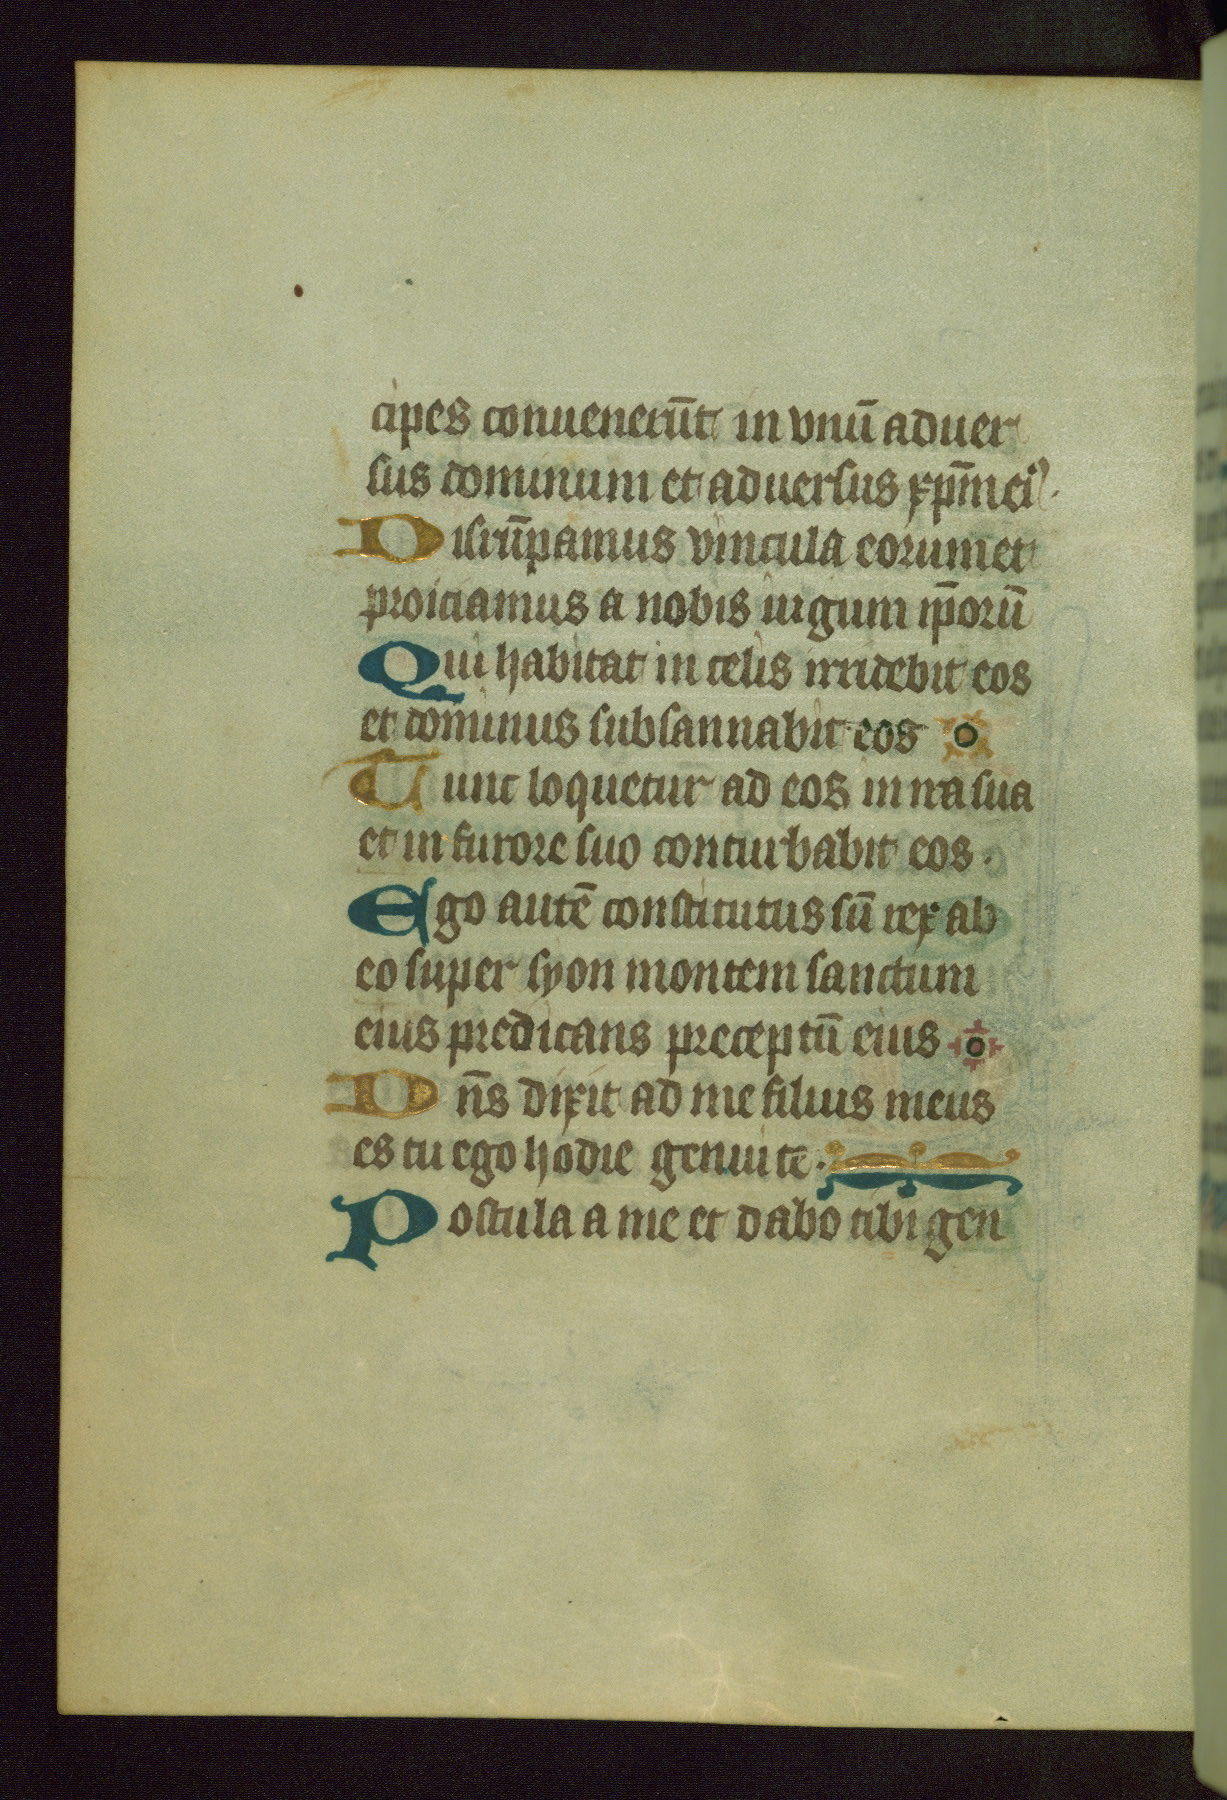 cipes conuenerūt in vnū aduer
sus dominum et aduersus xp̄m ei⁹.
Disrūpamus vincula eorum et
proiciamus a nobis iugum ip̄orū
Qui habitat in celis irridebit eos
et dominus subsannabit eos
Tunc loquetur ad eos in ira sua
et in furore suo conturbabit eos.
Ego autē constitutus sū rex ab
eo super syon montem sanctum
eius predicans preceptū eius
Dn̄s dixit ad me filius meus
es tu ego hodie genui te.
Postula a me et dabo tibi gen